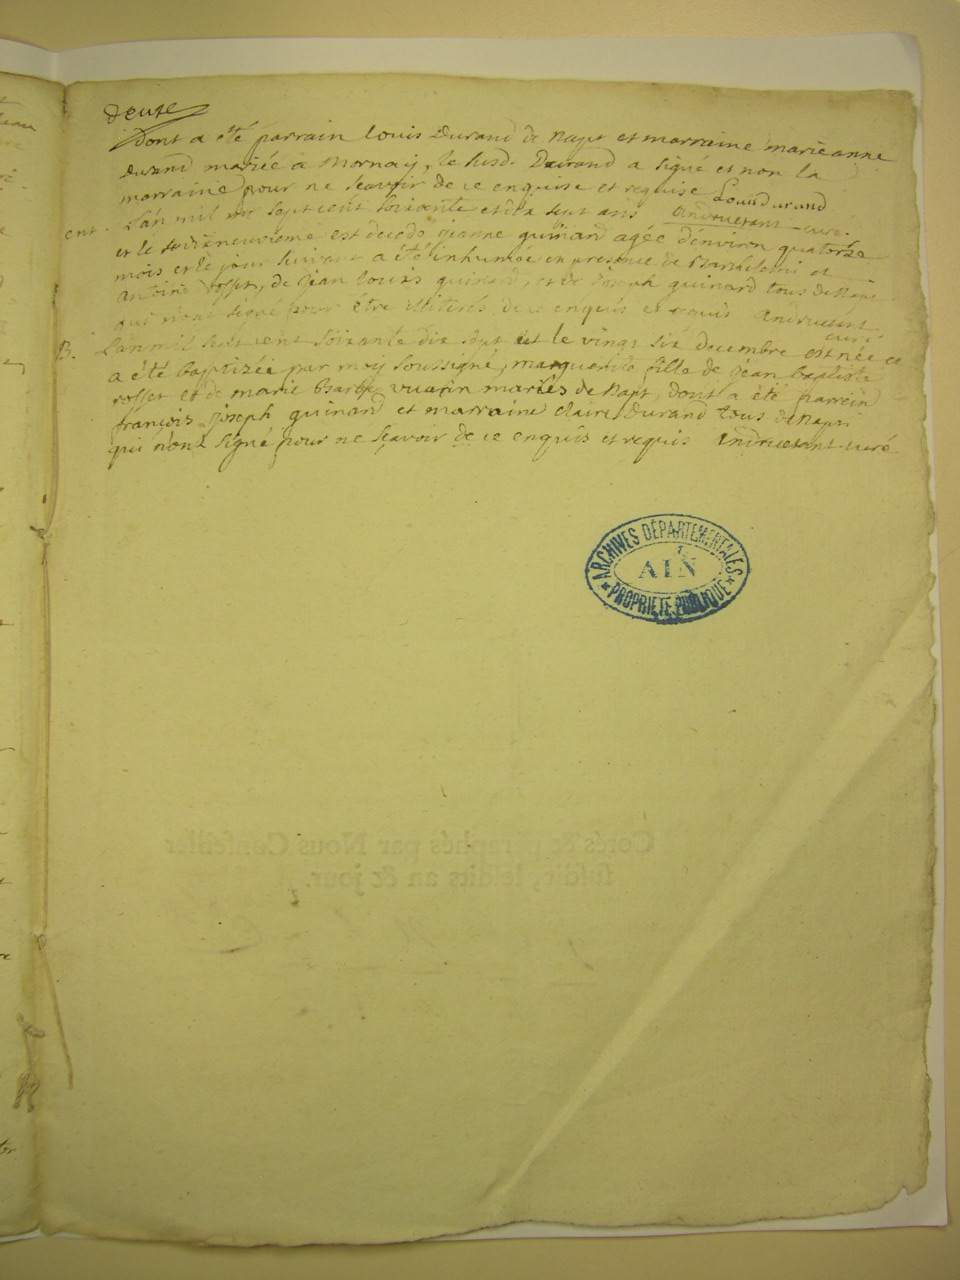 deuxe
dont a été parrain louis Durand de Napt et marraine marieanne
durand mariée a Mornay, le susd. Durand a signé et non la
marraine pour ne scavoir de ce enquise et requise Louis durand
ent. L'an mil sept cent soixante et dix sept ans Andruetant curé.
et le dixneuvieme est decedé jeanne guinard agée d'environ quatorze
mois et le jour suivant a été inhumée en presence de Barthelemi et
antoine rosset, de jean louis guinard, et de joseph guinard tous de Napt
qui n'ont signé pour être illiterés de ce enquis et requis Andruetant
curé
B. L'an mil sept cent soixante dix sept et le vingt six decembre est née et
a été baptizée par moy soussigné, marguerite fille de jean baptiste
rosset et de marie vuarin mariés de Napt, dont a été parrein
françois joseph guinard et marraine claire durand tous de Napt
qui n'ont signé pour ne sçavoir de ce enquis et requis Andruetant curé
ARCHIVES DÉPARTEMENTALES
AIN
PROPRIÉTÉ PUBLIQUE
Cotés & paraphés par Nous Conseiller
susdit, lesdits an & jour.